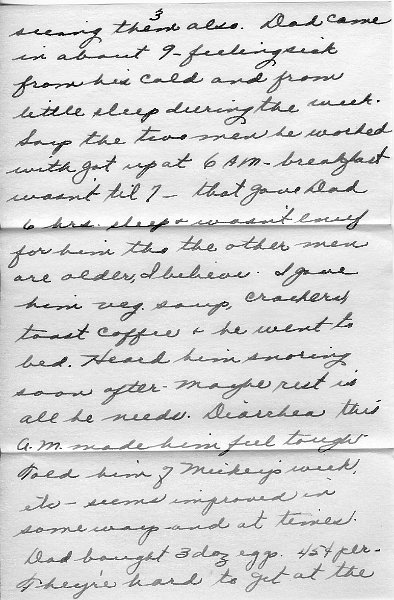 3
seeing them also. Dad came
in about 9 - feeling sick
from his cold and from
little sleep during the week.
Says the two men he worked
with got up at 6 AM - breakfast
wasn't til 7 - that gave Dad
6 hrs. sleep & wasn't enuf
for him tho the other men
are older, I believe. I gave
him veg. soup, crackers,
toast coffee & he went to
bed. Heard him snoring
soon after - Maybe rest is
all he needs. Diarrhea this
A.M. made him feel tough
Told him of Mickey's week,
etc - seems improved in
some ways and at times.
Dad bought 3 doz eggs. 45¢ per -
They're hard to get at the